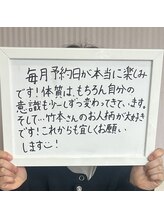 毎月予約日が本当に楽しみ
です!体質は、もちろん自分の
意識も少しずつ変わってきています。
そして…竹本さんのお人柄が大好き
です!これからも宜しくお願い
します